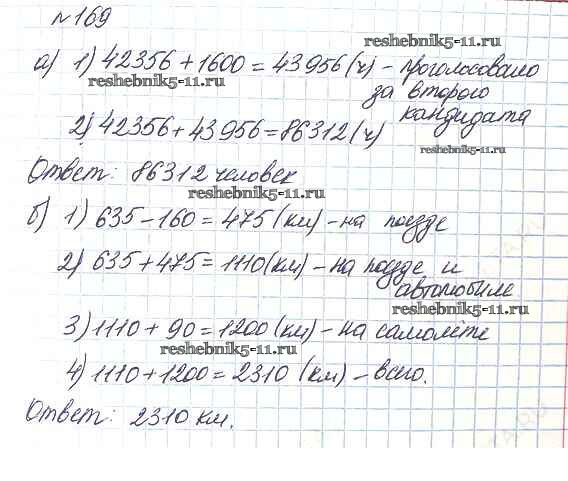 №169
reshebnik5-11.ru
а) 1) 42356 + 1600 = 43956 (ч) - проголосовало
reshebnik5-11.ru
за второго
кандидата
2) 42356 + 43956 = 86312 (ч)
reshebnik5-11.ru
Ответ: 86312 человек
reshebnik5-11.ru
б) 1) 635 - 160 = 475 (км) - на поезде
2) 635 + 475 = 1110 (км) - на поезде и
автомобиле
3) 1110 + 90 = 1200 (км) - на самолёте
reshebnik5-11.ru
4) 1110 + 1200 = 2310 (км) - всего.
Ответ: 2310 км.